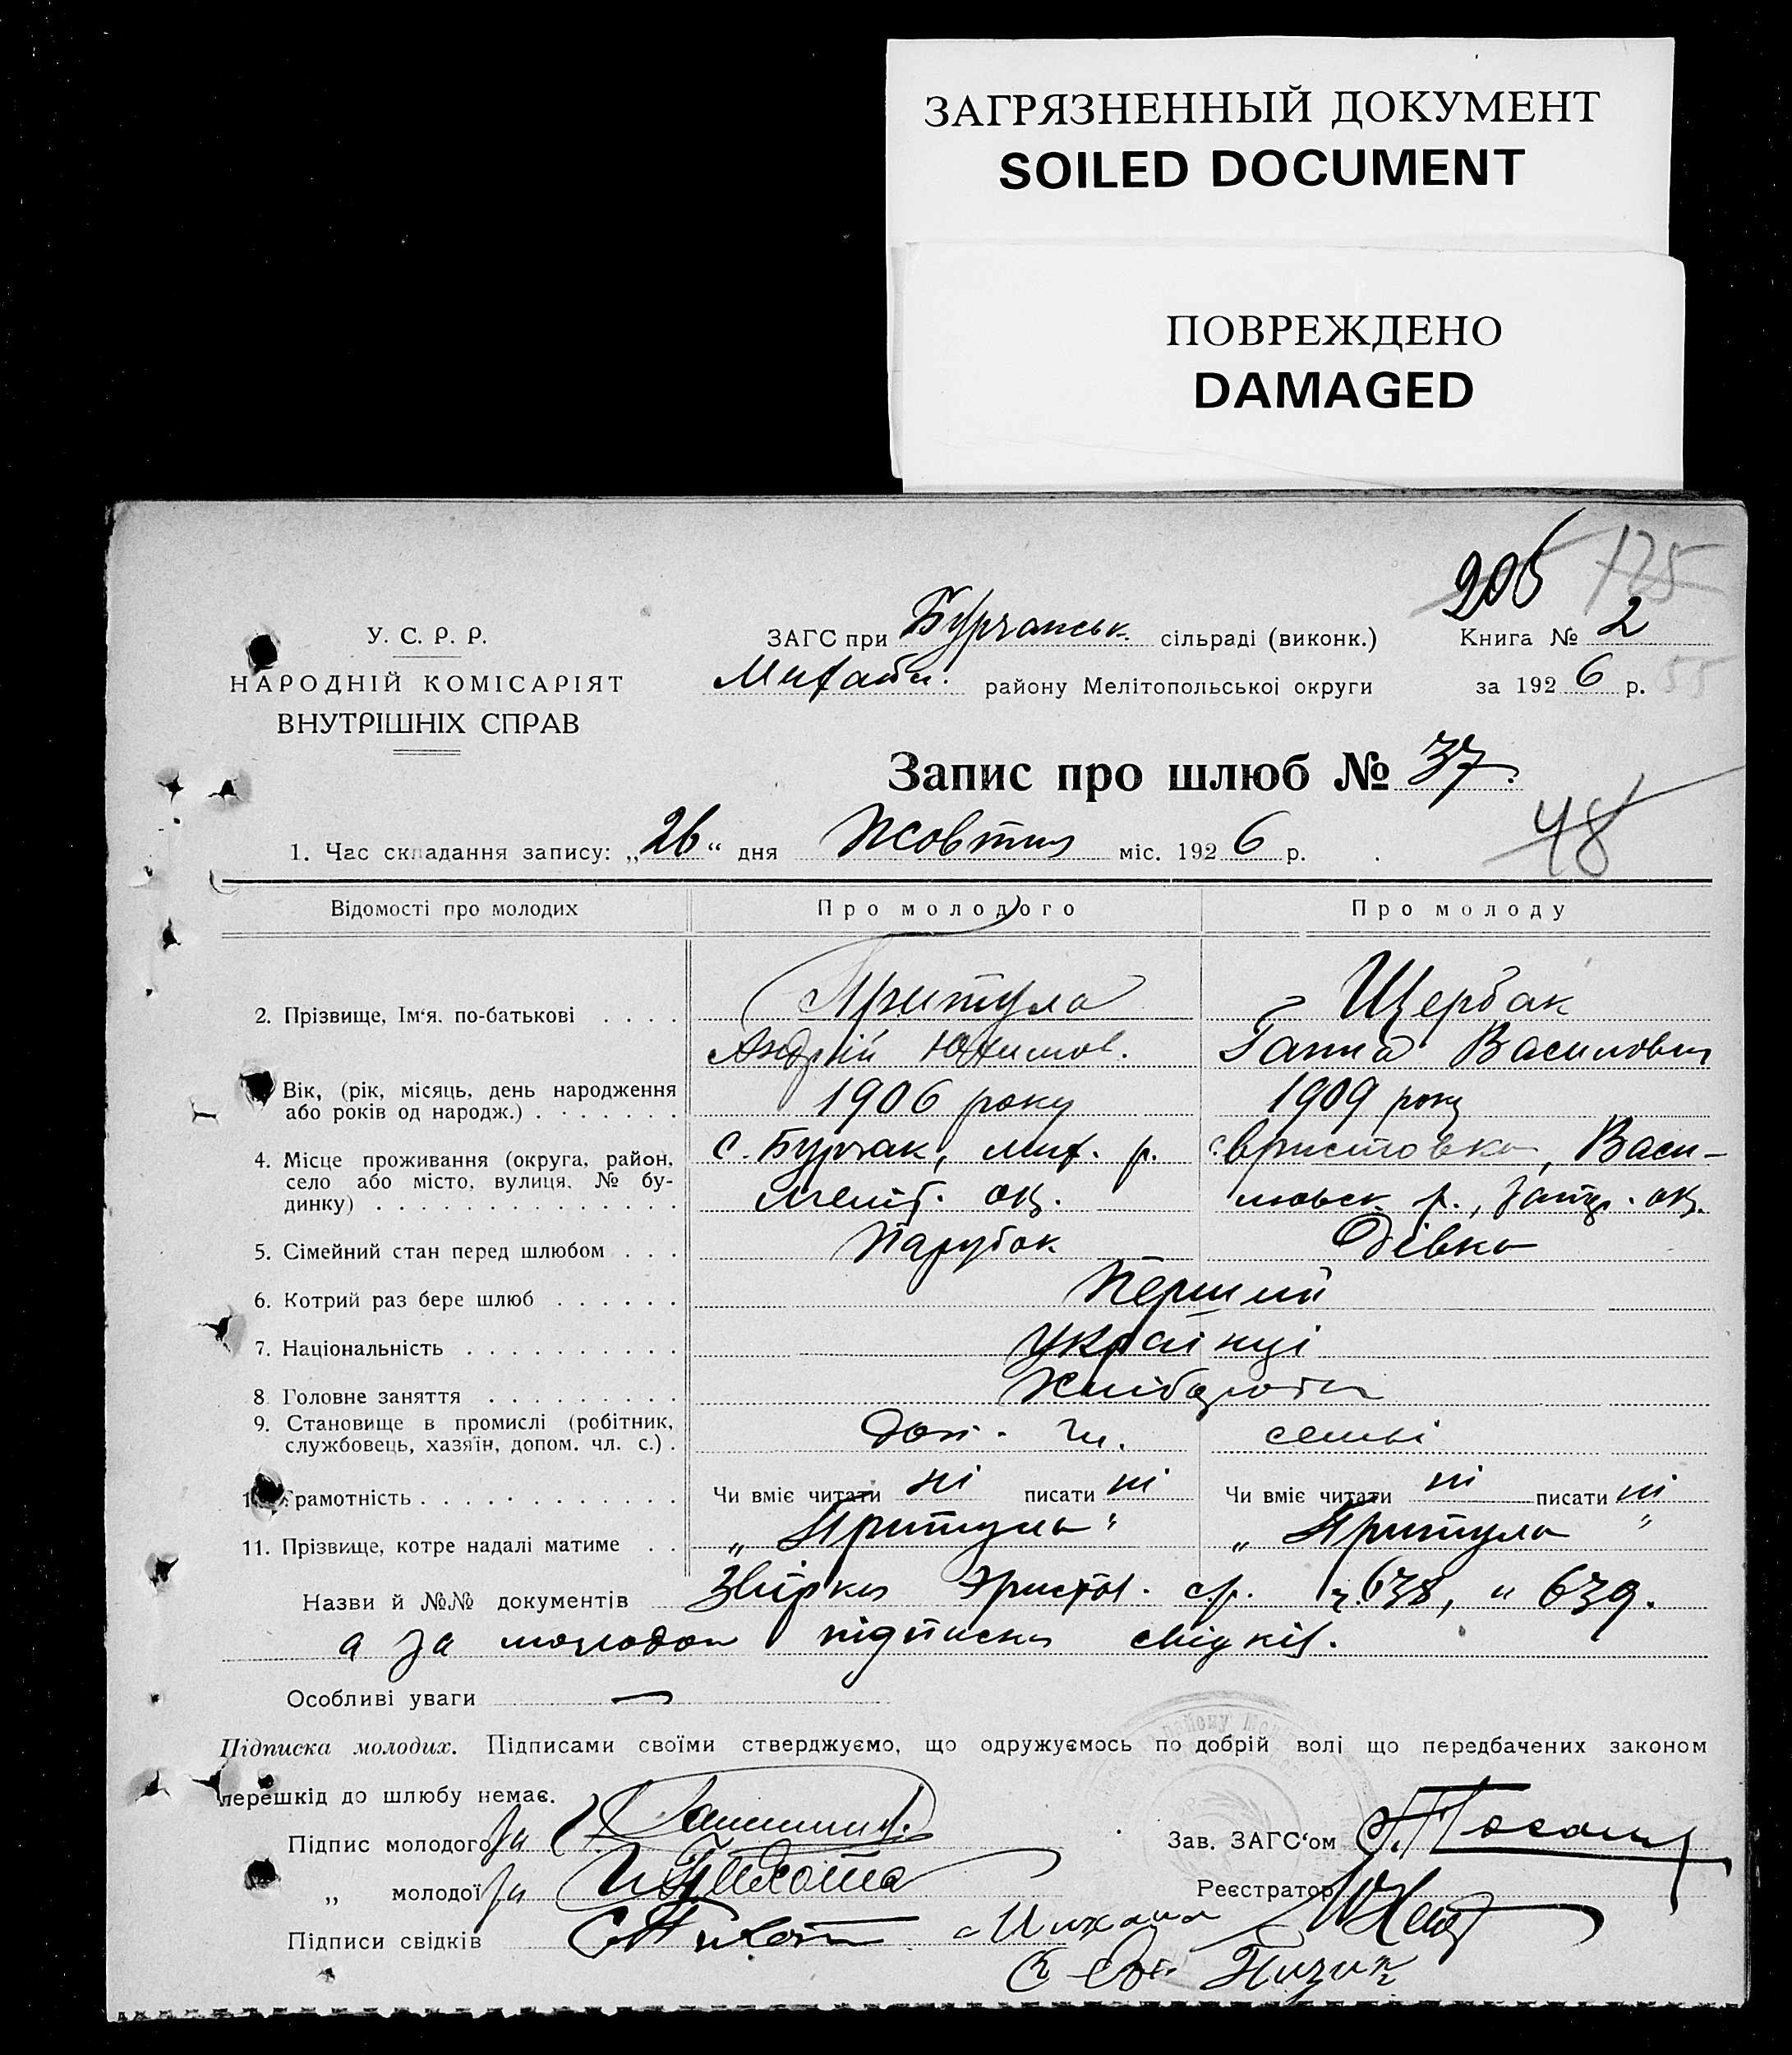 ЗАГРЯЗНЕННЫЙ ДОКУМЕНТ
SOILED DOCUMENT
ПОВРЕЖДЕНО
DAMAGED
206 125
У. С. Р. Р.
НАРОДНІЙ КОМІСАРІЯТ
ВНУТРІШНІХ СПРАВ
ЗАГС при Бурчанськ. сільраді (виконк.) Книга № 2
Михайл. району Мелітопольської округи за 1926 р. 55
Запис про шлюб № 37.
48
1. Час складання запису: „26“ дня Жовтня міс. 1926 р.
Відомості про молодих Про молодого Про молоду
2. Прізвище, Ім‘я. по-батькові Притула Щербак
Андрій Юхимов. Ганна Василовна
Вік, (рік, місяць, день народження 1906 року 1909 року
або років од народж.)
4. Місце проживання (округа, район, с. Бурчак, мих. р. Васи-
село або місто, вулиця, № бу- меліт. ок. лювськ. р., Запор. ок.
динку)
5. Сімейний стан перед шлюбом Парубок Дівка
6. Котрий раз бере шлюб Перший
7. Національність українці
8. Головне заняття Хлібороби
9. Становище в промислі (робітник, доп. чл. семьі
службовець, хазяїн, допом. чл. с.)
Грамотність Чи вміє читати ні писати ні Чи вміє читати ні писати ні
11. Прізвище, котре надалі матиме „Притула“ „Притула“
Назви й №№ документів с/р. ч. 638, „ 639.
а за молодої підписка свідків.
Особливі уваги —
Підписка молодих. Підписами своїми стверджуємо, що одружуємось по добрій волі що передбачених законом
перешкід до шлюбу немає.
Підпис молодого за
Зав. ЗАГС‘ом
„ молодої за
Реєстратор
Підписи свідків